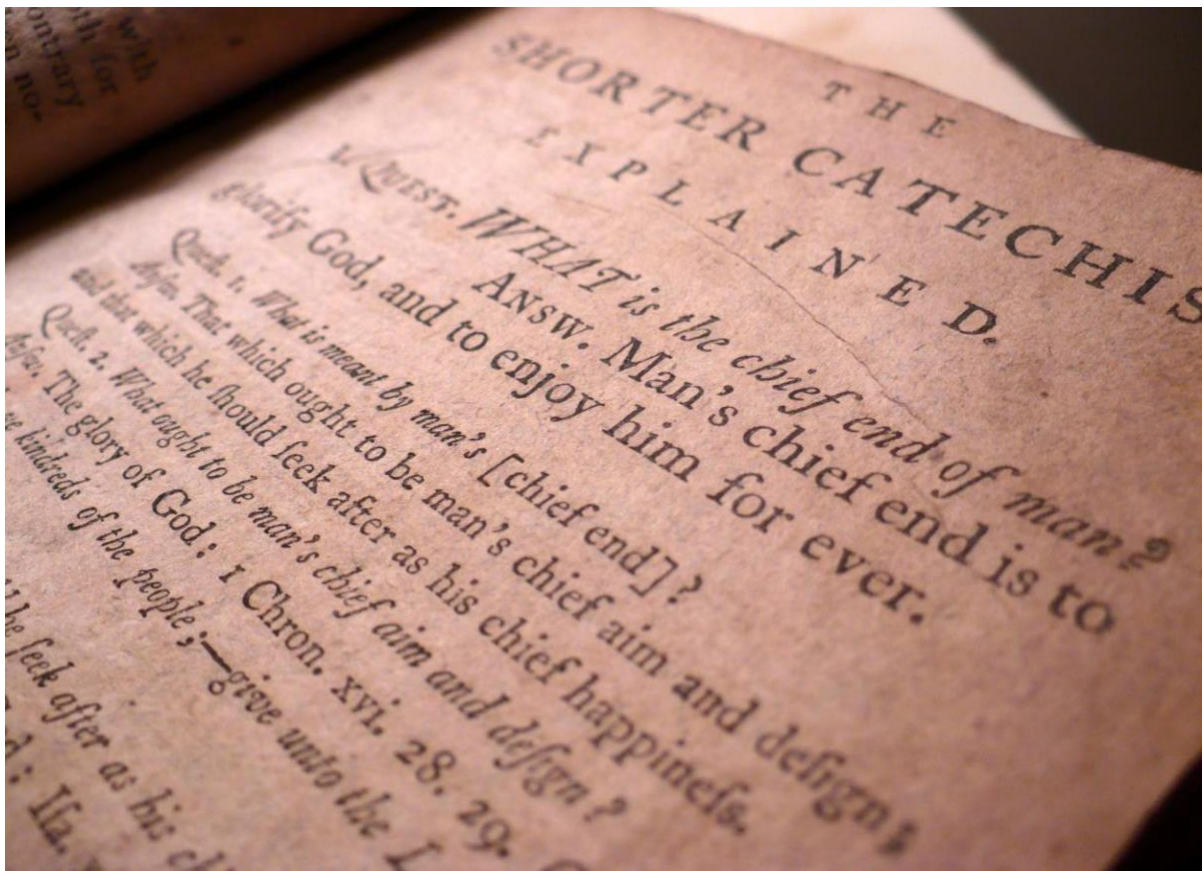 with
oth for
ontrary
n no-
THE
SHORTER CATECHIS
EXPLAINED.
1. QUEST. WHAT is the chief end of man?
ANSW. Man's chief end is to
glorify God, and to enjoy him for ever.
Queſt. 1. What is meant by man's [chief end]?
Anſw. That which ought to be man's chief aim and deſign;
and that which he ſhould ſeek after as his chief happineſs.
Queſt. 2. What ought to be man's chief aim and deſign?
Anſw. The glory of God: 1 Chron. xvi. 28. 29.
kindreds of the people;—give unto the L
he ſeek after as his
: Iſa.